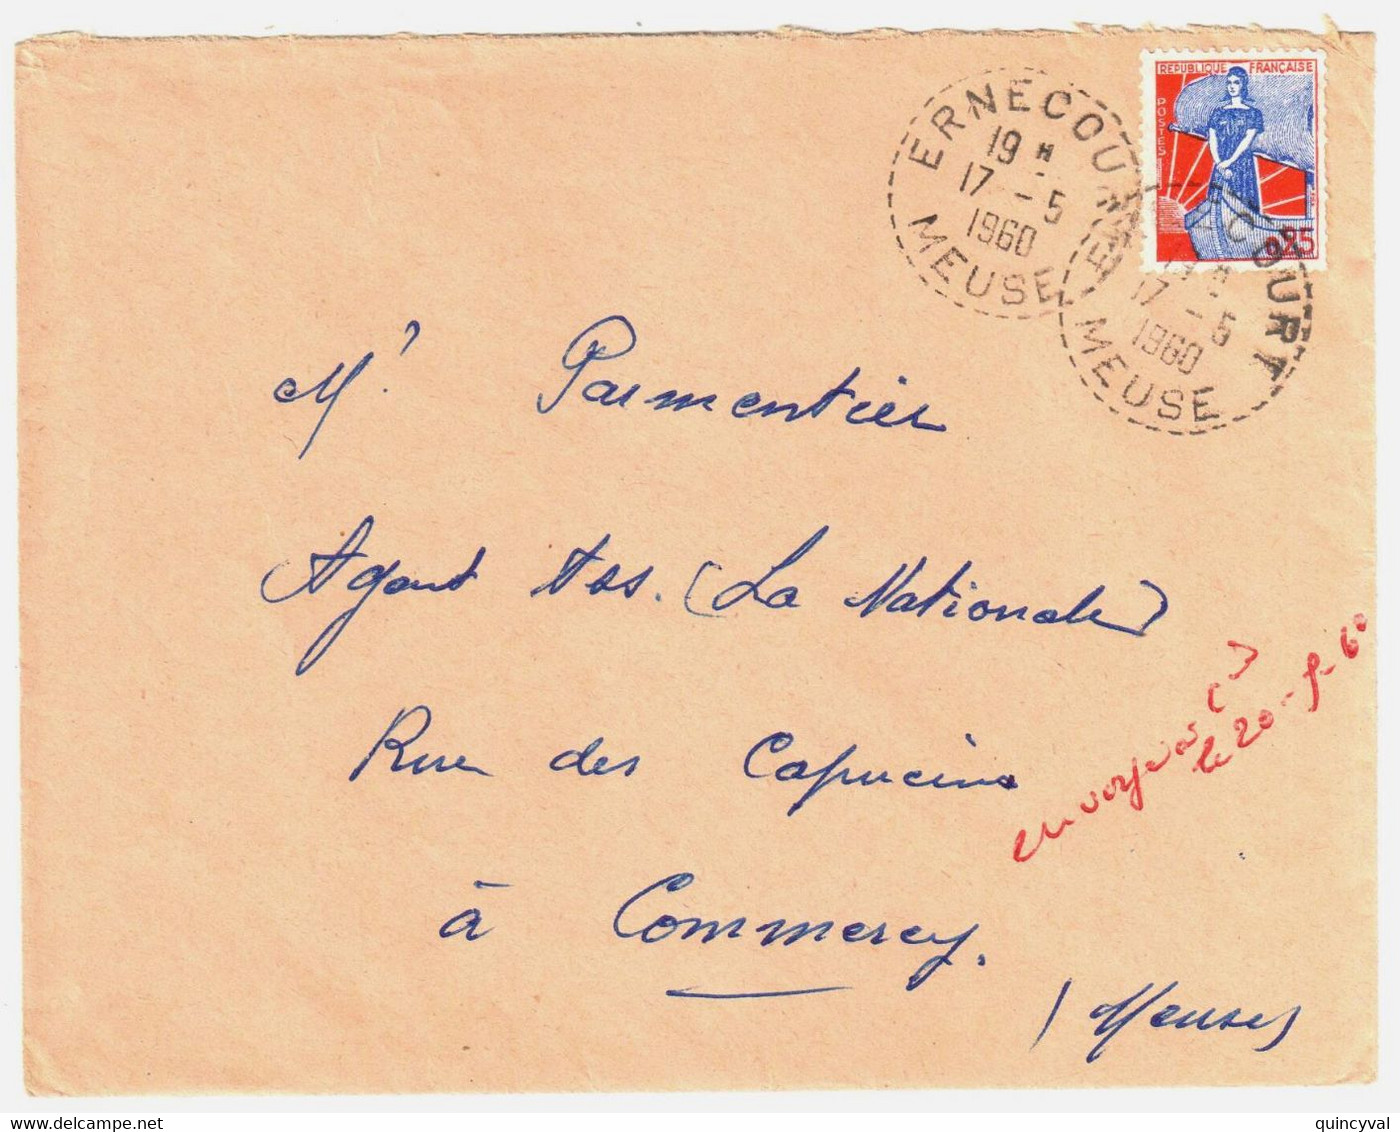 REPUBLIQUE FRANÇAISE
POSTES
0,25
ERNECOURT
19 H
17 - 5
1960
MEUSE
ERNECOURT
19 H
17 - 5
1960
MEUSE
Mr Parmentier
Agent Ass. (La Nationale)
Rue des Capucins
à Commercy.
(Meuse)
le 20-5-60
quincyval